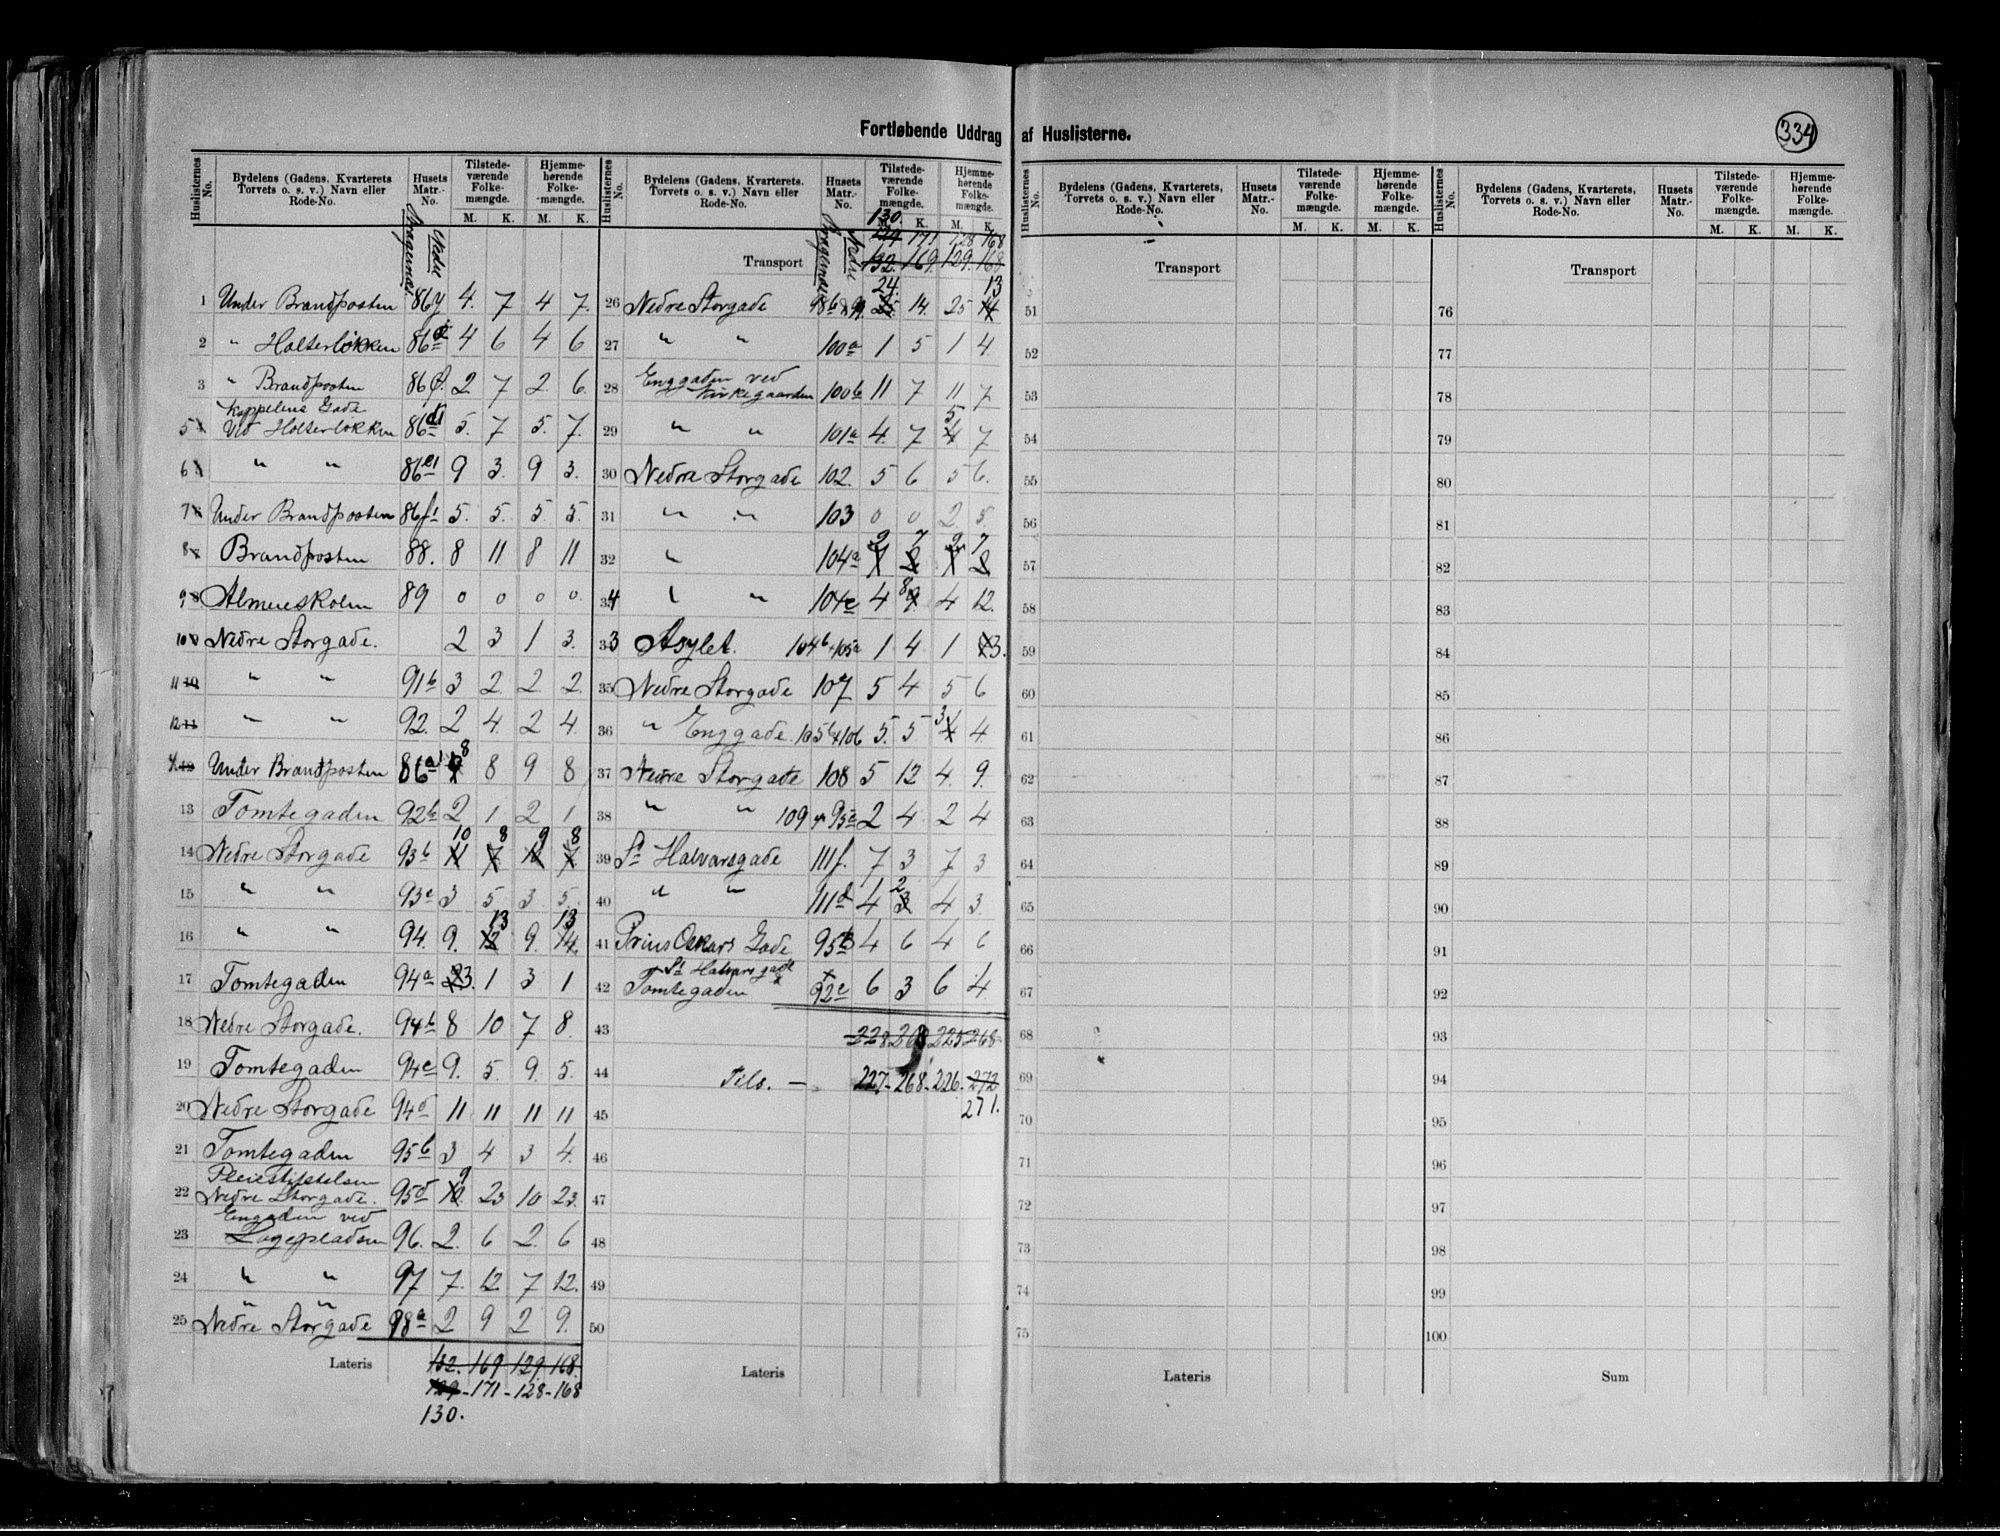 334
Fortløbende Uddrag af Huslisterne.
Huslisternes No. | Bydelens (Gadens, Kvarterets, Torvets o. s. v.) Navn eller Rode-No. | Husets Matr.-No. | Tilstedeværende Folkemængde. M. K. | Hjemmehørende Folkemængde. M. K.
Bragernes Nedre
1 Under Brandposten 86y 4. 7 4 7.
2 " Holterløkken 4 6 4 6
3 " Brandposten 2 7 2 6.
Kappelens Gade
5 Ved Holterløkken 86d1 5. 7 5. 7.
6 " " 86e1 9 3. 9 3.
7 Under Brandposten 86f1 5. 5. 5. 5.
8 Brandposten 88. 8 11 8 11
9 Almueskolen 89 0 0 0 0
10 Nedre Storgade. 2 3 1 3.
11 " " 91b 3 2 2 2
12 " " 92. 2 4 2 4.
4 Under Brandposten 86a1 8 8 9 8
13 Tomtegaden 92b 2 1 2 1
14 Nedre Storgade 93b 10 8 9 8
15 " " 93c 3 5 3 5.
16 " " 94. 9. 13 9. 13
17 Tomtegaden 94a 3. 1 3 1
18 Nedre Storgade. 94b 8 10 7 8.
19 Tomtegaden 94c 9. 5. 9. 5.
20 Nedre Storgade 94d 11 11 11 11
21 Tomtegaden 95b 3 4 3 4.
Pleiestiftelsen
22 Nedre Storgade. 95d 9 23 10 23.
Engaden ved
23 Logepladsen 96. 2. 6 2. 6
24 " " 97 7. 12 7 12.
25 Nedre Storgade 98a 2 9 2 9.
Lateris 132. 169. 129. 168.
129 - 171 - 128 - 168
130.
Bragernes Nedre
130.
129 171 128 168
Transport 132. 169. 129. 168
24. 13
26 Nedre Storgade 98b & 99. 25. 14. 25 14
27 " " 100a 1 5 1 4.
28 Enggaden ved Kirkegaarden 100b 11 7 11 7
29 " " 101a 4. 7 5 7
30 Nedre Storgade 102. 5 6 5 6.
31 " " 103 0 0 2. 5.
32 " 104a 2 7 2 7
34 " " 104c 4 8 4 12.
33 Asylet. 104b + 105a 1 4 1 3.
35 Nedre Storgade 107 5 4 5 6
36 " Enggade. 105b + 106 5. 5 3 4.
37 Nedre Storgade 108 5 12 4. 9.
38 " " 109 95a 2 4 2 4
39 St Halvarsgade 111f. 7 3 7 3
40 " " 111d 4 2 4 3
41 Prins Oskars Gade 95b 4 6 4 6
St Halvarsgade
42 Tomtegaden 92c 6 3 6 4
43 228 225 268
44 Tils. — 227 - 268 - 226. 272
45 271.
46
47
48
49
50
Lateris
Huslisternes No. | Bydelens (Gadens, Kvarterets, Torvets o. s. v.) Navn eller Rode-No. | Husets Matr.-No. | Tilstedeværende Folkemængde. M. K. | Hjemmehørende Folkemængde. M. K.
Transport
51
52
53
54
55
56
57
58
59
60
61
62
63
64
65
66
67
68
69
70
71
72
73
74
75
Lateris
Huslisternes No. | Bydelens (Gadens, Kvarterets, Torvets o. s. v.) Navn eller Rode-No. | Husets Matr.-No. | Tilstedeværende Folkemængde. M. K. | Hjemmehørende Folkemængde. M. K.
Transport
76
77
78
79
80
81
82
83
84
85
86
87
88
89
90
91
92
93
94
95
96
97
98
99
100
Sum